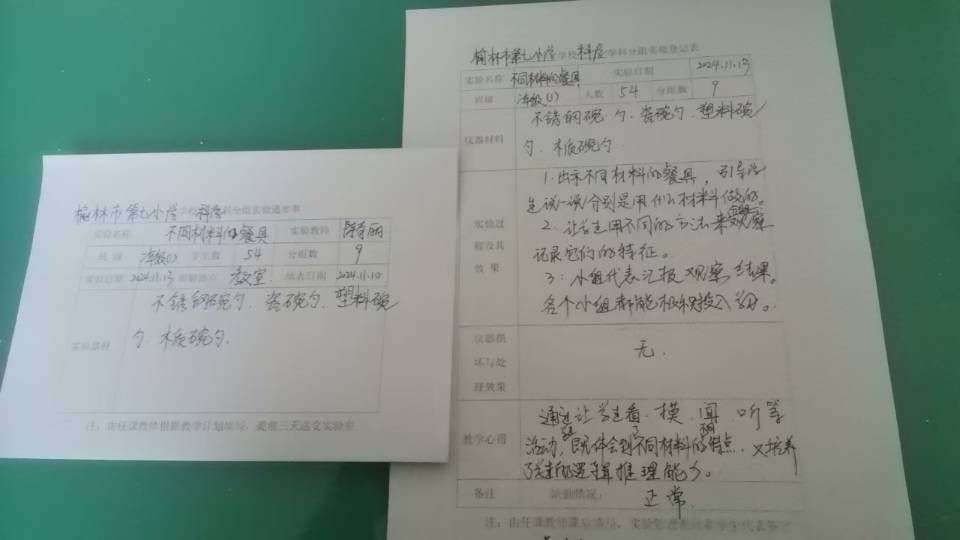 榆林市第七小学学校科学学科分组实验通知单
实验名称 不同材料的餐具 实验教师
班级 学生数 54 分组数 9
实验日期 2024.11.13 实验地点 教室 填表日期 2024.11.10
实验器材 不锈钢碗勺、瓷碗勺、塑料碗
勺、木质碗勺。
注：由任课教师根据教学计划填写，提前三天送交实验室
榆林市第七小学学校科学学科分组实验登记表
实验名称 不同材料的餐具 实验日期 2024.11.13
班级 人数 54 分组数 9
仪器材料 不锈钢碗 勺、瓷碗勺、塑料碗
勺、木质碗勺
实验过程及其效果 1、出示不同材料的餐具，引导学
生说一说分别是用什么材料做的。
2、让学生用不同的方法来观察
记录它们的特征。
3：小组代表汇报观察结果。
各个小组都能积极投入学习。
仪器损坏与处理效果 无.
教学心得 通过让学生看、摸、闻、听等
活动，既体会到了不同材料的特点，又培养
了学生的逻辑推理能力。
备注 缺勤情况： 正常